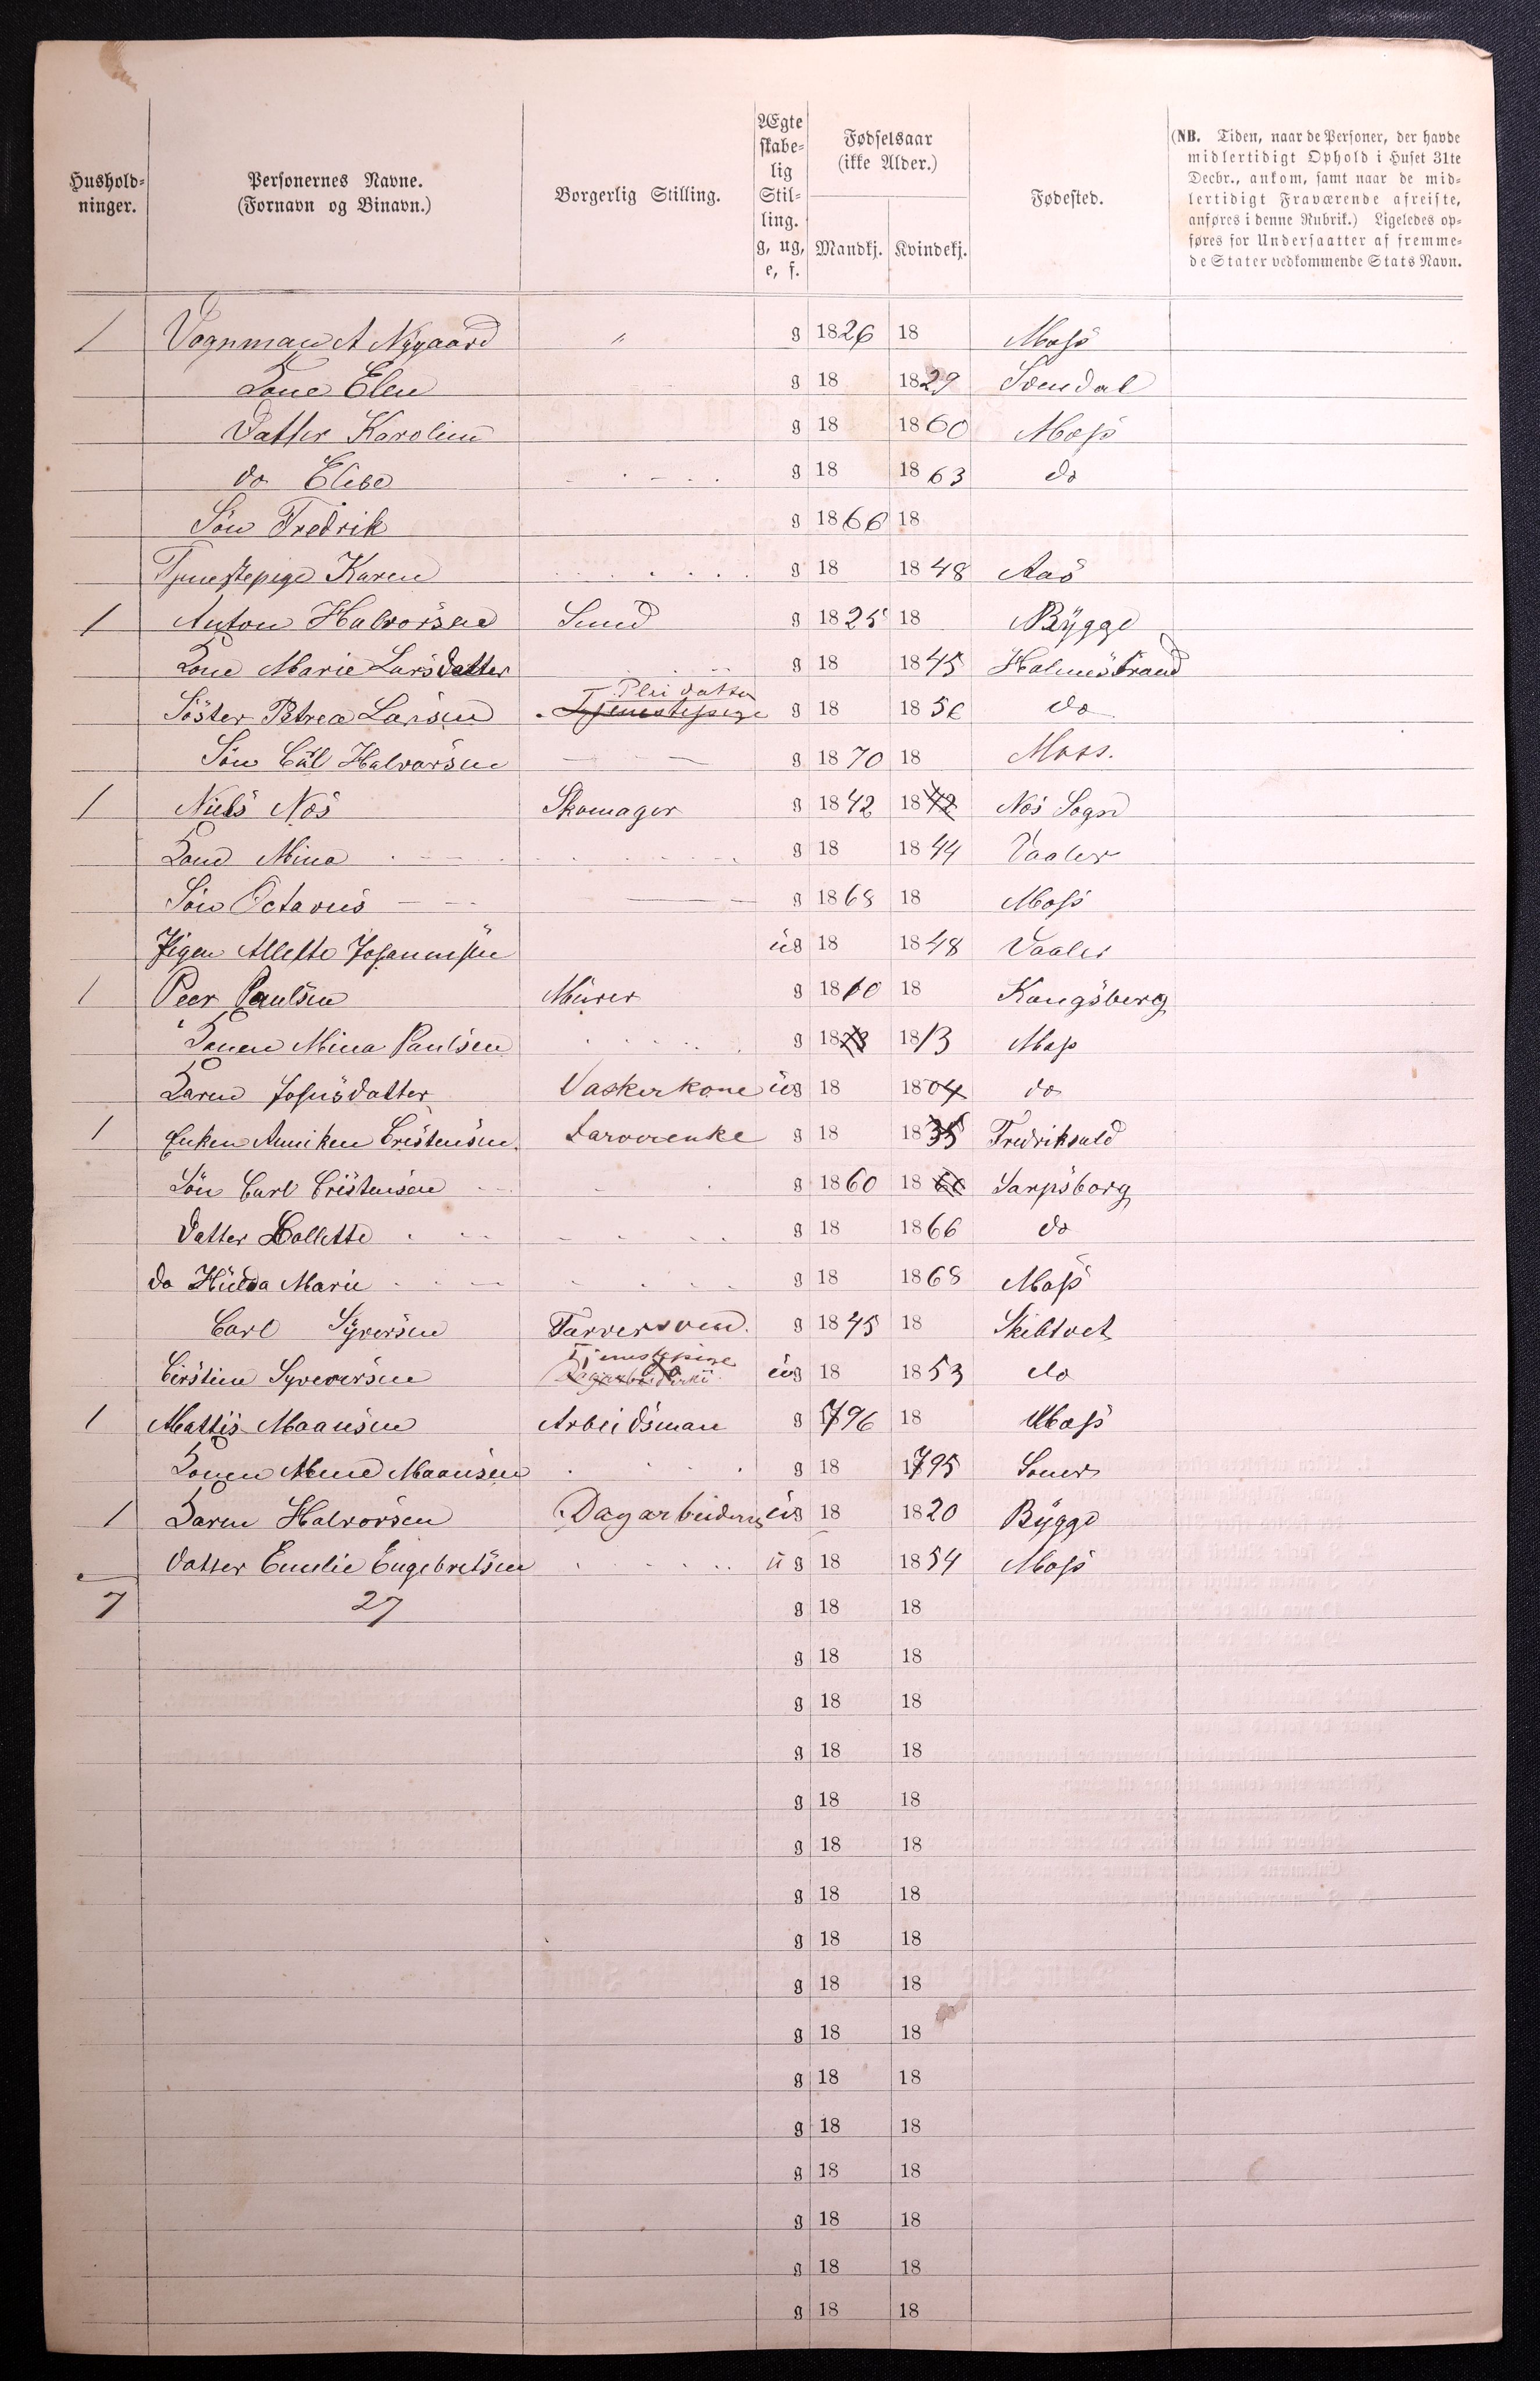 Hushold-
ninger.
Personernes Navne.
(Fornavn og Binavn.)
Borgerlig Stilling.
Ægte
skabe-
lig
Stil-
ling.
g, ug,
e, f.
Fødselsaar
(ikke Alder.)
Mandkj. Kvindekj.
Fødested.
(NB. Tiden, naar de Personer, der havde
midlertidigt Ophold i Huset 31te
Decbr., ankom, samt naar de mid-
lertidigt Fraværende afreiste,
anføres i denne Rubrik.) Ligeledes op-
føres for Undersaatter af fremme-
de Stater vedkommende Stats Navn.
1 Vognman A Nygaard " g 1826 18 Moss
Kone Elen g 18 1829
Datter Karoline g 18 1860 Moss
do Elise g 18 1863 do
Søn Fredrik g 1866 18
Tjenestepige Karen g 18 1848 Aas
1 Anton Halvorsen Smed g 1825 18 Rygge
Kone Marie Larsdatter g 18 1845 Holmestrand
Pleidatter
Søster Petrea Larsen Tjenestepige g 18 1856 do
Søn Carl Halvorsen g 1870 18 Moss.
1 Niels Næs Skomager g 1842 1842 Næs Sogn
Kone Mina g 18 1844 Vaaler
Søn Octavus g 1868 18 Moss
Pigen Allette Johannesen ug 18 1848 Vaaler
1 Peer Paulsen Murer g 1810 18 Kongsberg
Konen Mina Paulsen g 18 1813 Moss
Karen Johnsdatter Vaskerkone ug 18 1804 do
1 Enken Anniken Cristensen Farverenke g 18 1835 Fredrikhald
Søn Carl Cristensen g 1860 1860 Sarpsborg
Datter Collette g 18 1866 do
do Hulda Marie g 18 1868 Moss
Carl Syversen Farversvend. g 1845 18 Skibtvet
Tjenestepige
Cirstine Syverersen Dagarbeiderske ug 18 1853 do
1 Mattis Maansen Arbeidsman g 1796 18 Moss
Konen Anne Maansen g 18 1795 Soner
1 Karen Halvorsen Dagarbeiders ug 18 1820 Rygge
Datter Emilie Engebretsen ug 18 1854 Moss
7 27 g 18 18
g 18 18
g 18 18
g 18 18
g 18 18
g 18 18
g 18 18
g 18 18
g 18 18
g 18 18
g 18 18
g 18 18
g 18 18
g 18 18
g 18 18
g 18 18